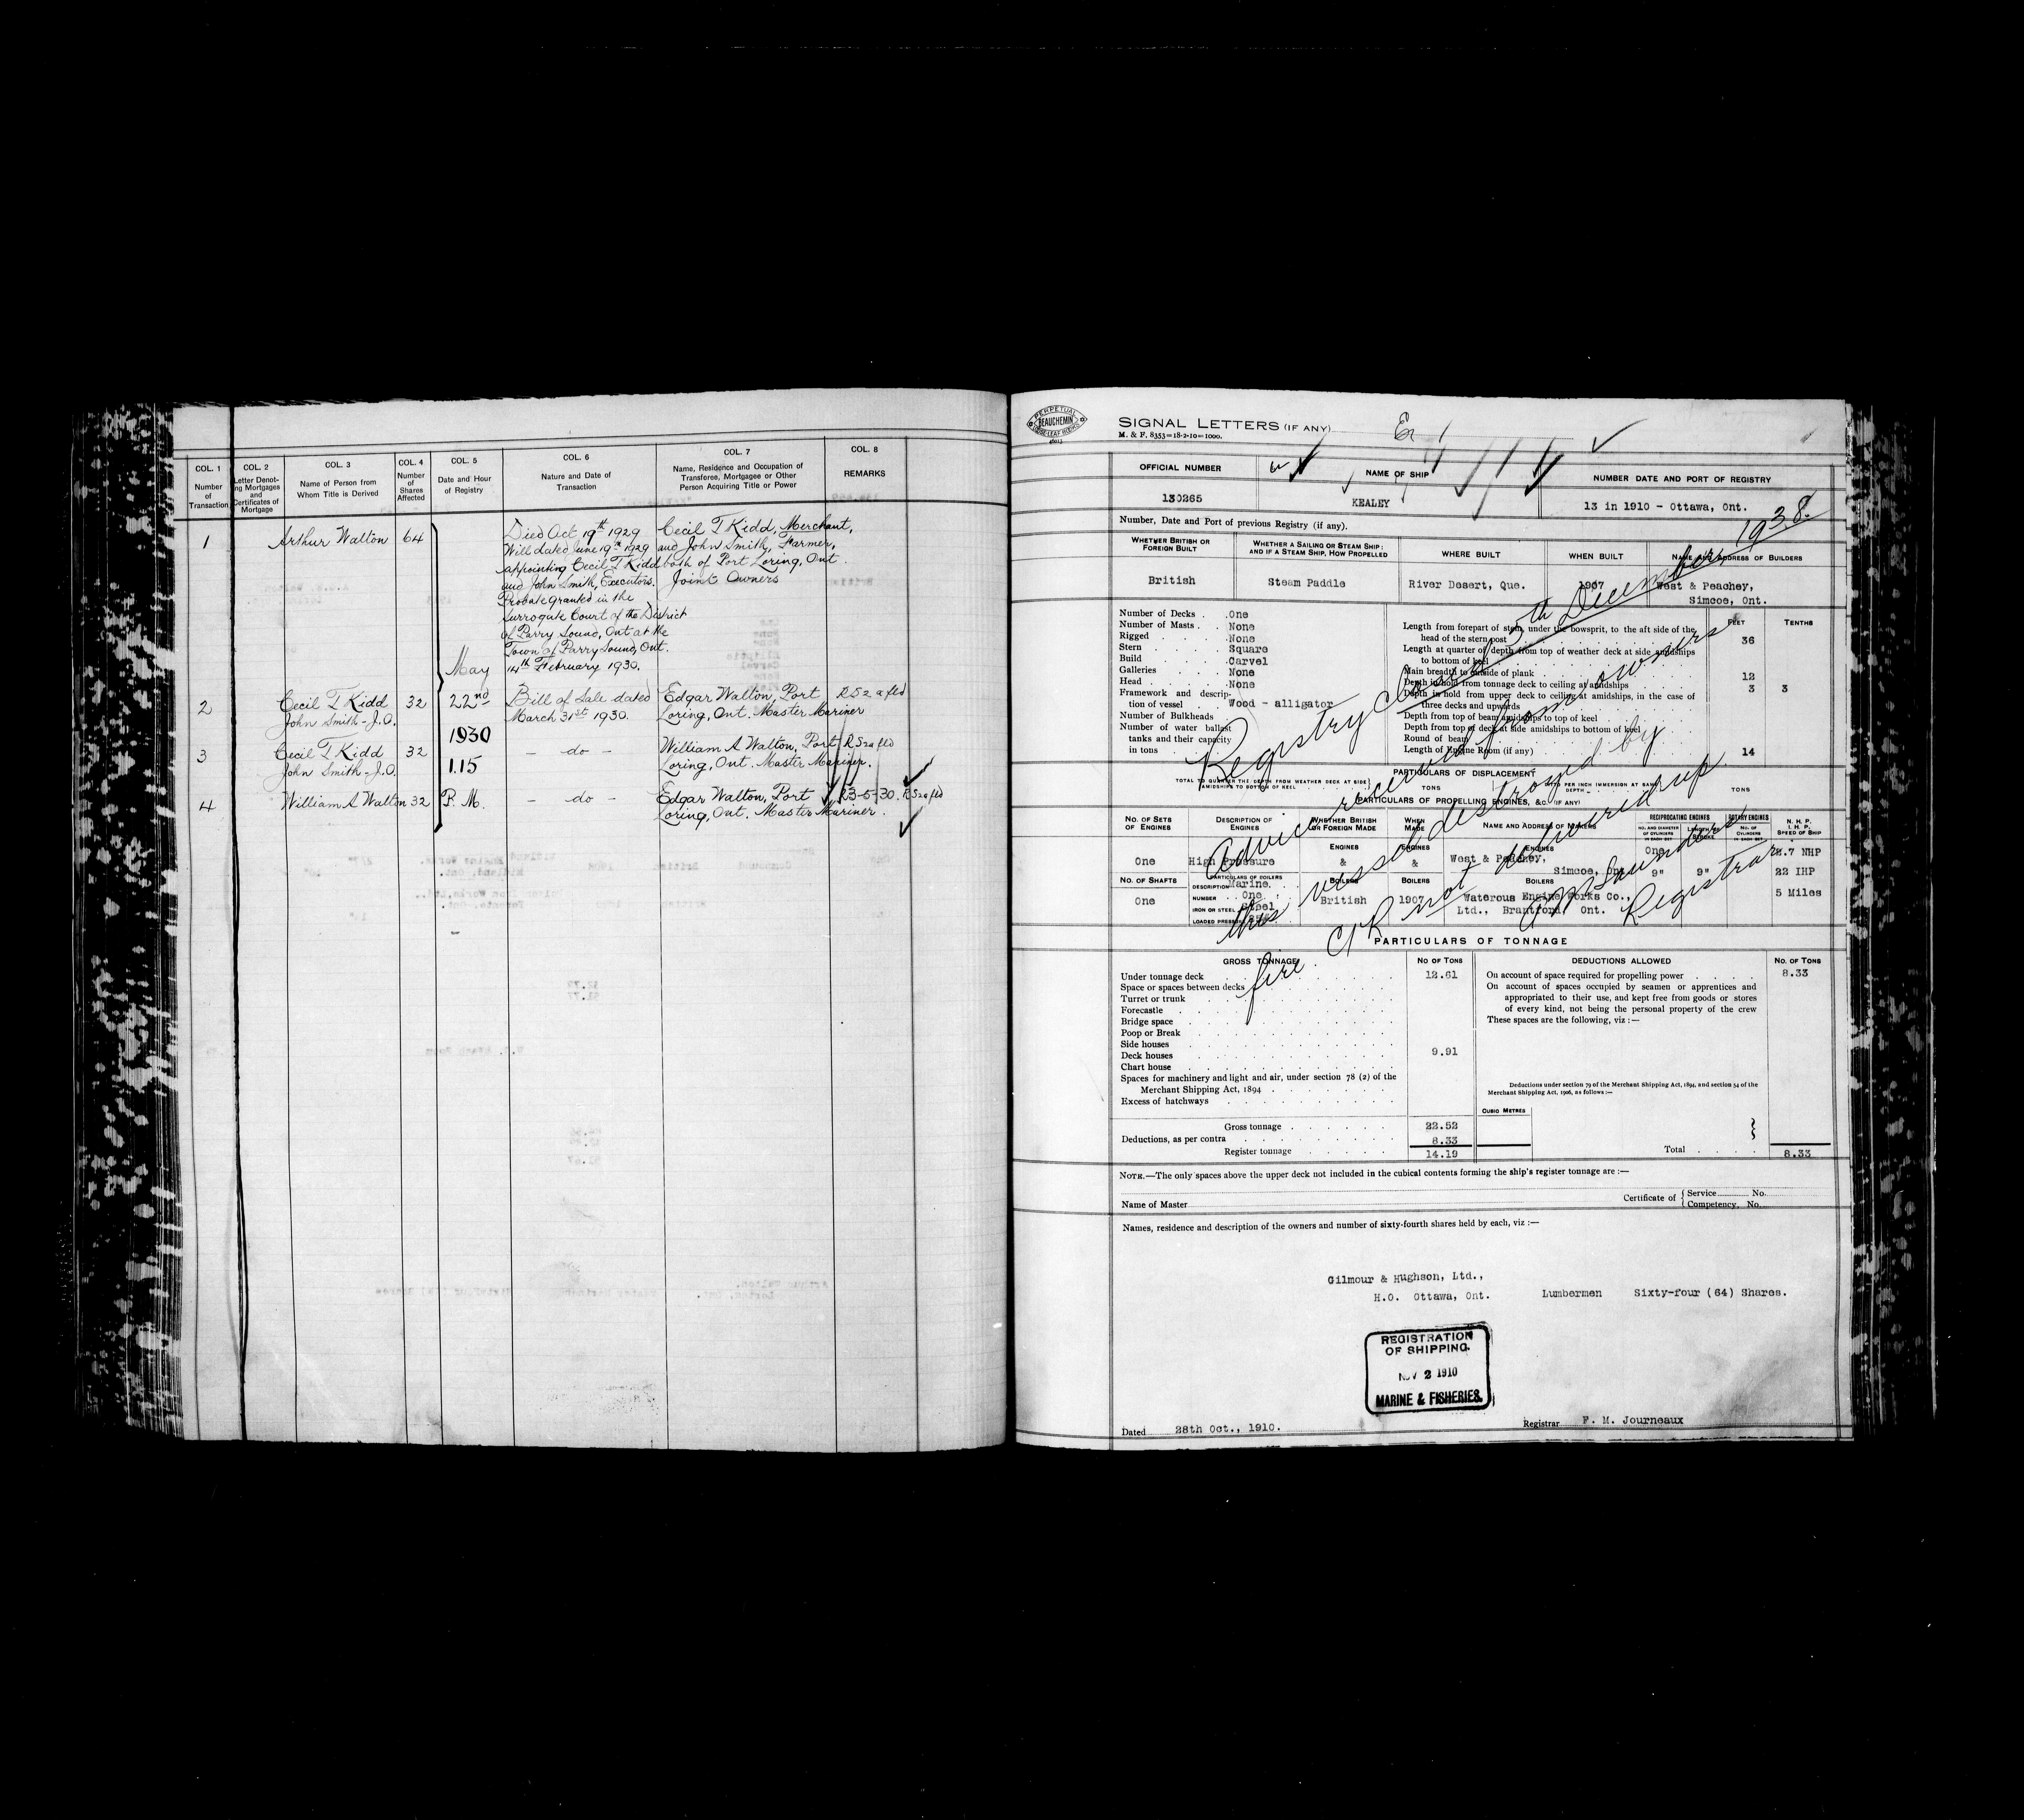 COL. 1 COL. 2 COL. 3 COL. 4 COL. 5 COL. 6 COL. 7 COL. 8
Number of Transaction
Letter Denoting Mortgages and Certificates of Mortgage
Name of Person from Whom Title is Derived
Number of Shares Affected
Date and Hour of Registry
Nature and Date of Transaction
Name, Residence and Occupation of Transferee, Mortgagee or Other Person Acquiring Title or Power
REMARKS
1 Arthur Walton 64 Died Oct 19th 1929 Cecil T Kidd, Merchant,
Will dated June 19th 1929 and John Smith, Farmer,
appointing Cecil T Kidd both of Port Loring, Ont.
and John Smith, Executors. Joint Owners
Probate granted in the
Surrogate Court of the District
of Parry Sound, Ont at the
Town of Parry Sound, Ont.
May 14th February 1930.
2 Cecil T Kidd 32 22nd Bill of Sale dated Edgar Walton, Port
John Smith - J.O. March 31st 1930. Loring, Ont. Master Mariner
1930
3 Cecil T Kidd 32 - do - William A Walton, Port
John Smith - J.O. 1.15 Loring, Ont. Master Mariner.
4 William A Walton 32 P.M. - do - Edgar Walton, Port 23-5-30.
Loring, Ont. Master Mariner.
PERPETUAL
BEAUCHEMIN
LOOSE-LEAF
SIGNAL LETTERS (IF ANY)
M. & F. 8353=18-2-10=1000.
OFFICIAL NUMBER NAME OF SHIP NUMBER DATE AND PORT OF REGISTRY
130265 KEALEY 13 in 1910 - Ottawa, Ont.
Number, Date and Port of previous Registry (if any).
WHETHER BRITISH OR FOREIGN BUILT
WHETHER A SAILING OR STEAM SHIP; AND IF A STEAM SHIP, HOW PROPELLED
WHERE BUILT
WHEN BUILT
NAME AND ADDRESS OF BUILDERS
British Steam Paddle River Desert, Que. 1907 West & Peachey,
Simcoe, Ont.
Number of Decks One
Number of Masts None
Rigged None
Stern Square
Build Carvel
Galleries None
Head None
Framework and description of vessel Wood - alligator
Number of Bulkheads
Number of water ballast
tanks and their capacity
in tons
FEET TENTHS
Length from forepart of stem, under the bowsprit, to the aft side of the
head of the stern post 36
Length at quarter of depth from top of weather deck at side amidships
to bottom of keel
Main breadth to outside of plank 12
Depth in hold from tonnage deck to ceiling at amidships 3 3
Depth in hold from upper deck to ceiling at amidships, in the case of
three decks and upwards
Depth from top of beam amidships to top of keel
Depth from top of deck at side amidships to bottom of keel
Round of beam
Length of Engine Room (if any) 14
Registry closed 5th December, 1938.
Advice received from owners
this vessel destroyed by
fire. C/R not delivered up.
Saunders
Registrar
PARTICULARS OF DISPLACEMENT
TOTAL TO QUARTER THE DEPTH FROM WEATHER DECK AT SIDE
AMIDSHIPS TO BOTTOM OF KEEL TONS DITTO PER INCH IMMERSION AT SAME DEPTH TONS
PARTICULARS OF PROPELLING ENGINES, &C. (IF ANY)
NO. OF SETS OF ENGINES
DESCRIPTION OF ENGINES
WHETHER BRITISH OR FOREIGN MADE
WHEN MADE
NAME AND ADDRESS OF MAKERS
RECIPROCATING ENGINES
NO. AND DIAMETER OF CYLINDERS IN EACH SET
LENGTH OF STROKE
ROTARY ENGINES
NO. OF CYLINDERS IN EACH SET
N. H. P.
I. H. P.
SPEED OF SHIP
ENGINES ENGINES ENGINES
One High Pressure & & West & Peachey, One
Simcoe, Ont. 9" 9" 22 IHP
NO. OF SHAFTS PARTICULARS OF BOILERS BOILERS BOILERS BOILERS
DESCRIPTION Marine
NUMBER One
IRON OR STEEL Steel
LOADED PRESSURE
One British 1907 Waterous Engine Works Co., 5 Miles
Ltd., Brantford, Ont.
PARTICULARS OF TONNAGE
GROSS TONNAGE NO OF TONS DEDUCTIONS ALLOWED NO. OF TONS
Under tonnage deck 12.61
Space or spaces between decks
Turret or trunk
Forecastle
Bridge space
Poop or Break
Side houses
Deck houses 9.91
Chart house
Spaces for machinery and light and air, under section 78 (2) of the
Merchant Shipping Act, 1894
Excess of hatchways
Gross tonnage 22.52
Deductions, as per contra 8.33
Register tonnage 14.19
On account of space required for propelling power 8.33
On account of spaces occupied by seamen or apprentices and
appropriated to their use, and kept free from goods or stores
of every kind, not being the personal property of the crew
These spaces are the following, viz :—
Deductions under section 79 of the Merchant Shipping Act, 1894, and section 54 of the
Merchant Shipping Act, 1906, as follows :—
CUBIC METRES
Total 8.33
NOTE.—The only spaces above the upper deck not included in the cubical contents forming the ship's register tonnage are :—
Name of Master Certificate of Service No.
Competency, No.
Names, residence and description of the owners and number of sixty-fourth shares held by each, viz :—
Gilmour & Hughson, Ltd.,
H.O. Ottawa, Ont. Lumbermen Sixty-four (64) Shares.
REGISTRATION
OF SHIPPING.
NOV 2 1910
MARINE & FISHERIES.
Dated 28th Oct., 1910. Registrar F. M. Journeaux